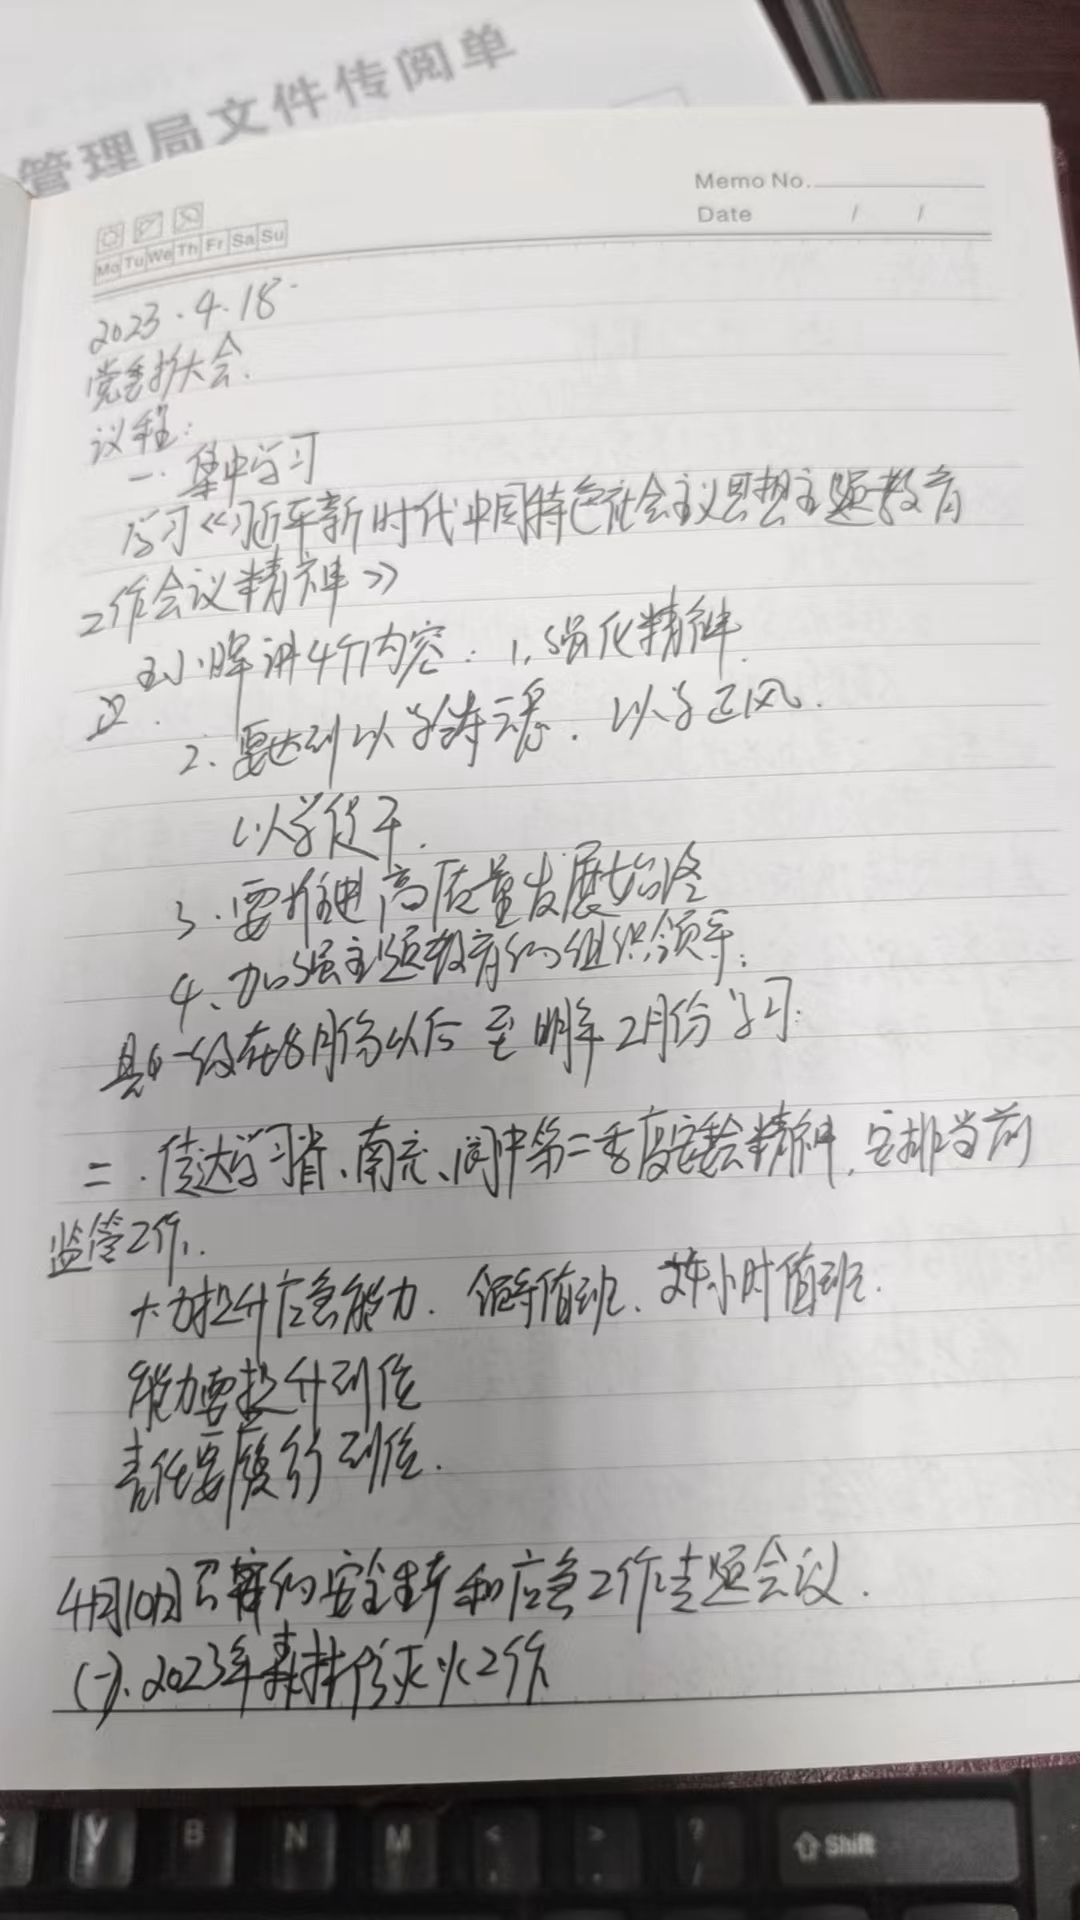 管理局文件传阅单
Memo No.
Date / /
Mo Tu We Th Fr Sa Su
2023.4.18.
党委扩大会.
议程:
一. 集中学习
学习《习近平新时代中国特色社会主义思想主题教育
工作会议精神》
小晖讲4个内容: 1.强化精神.
2. 要达到以学铸魂. 以学正风.
以学促干.
3. 要推进高质量发展始终
4、加强主题教育的组织领导.
县一级在8月份以后至明年2月份学习.
二. 传达学习省、南充、阆中第二季度安委会精神, 安排当前
监管工作.
大力提升应急能力. 领导值班、24小时值班.
能力要提升到位
责任要履行到位.
4月10日召开的安全生产和应急工作专题会议.
(一)、2023年森林防灭火工作
Y B N M < > ? / Shift